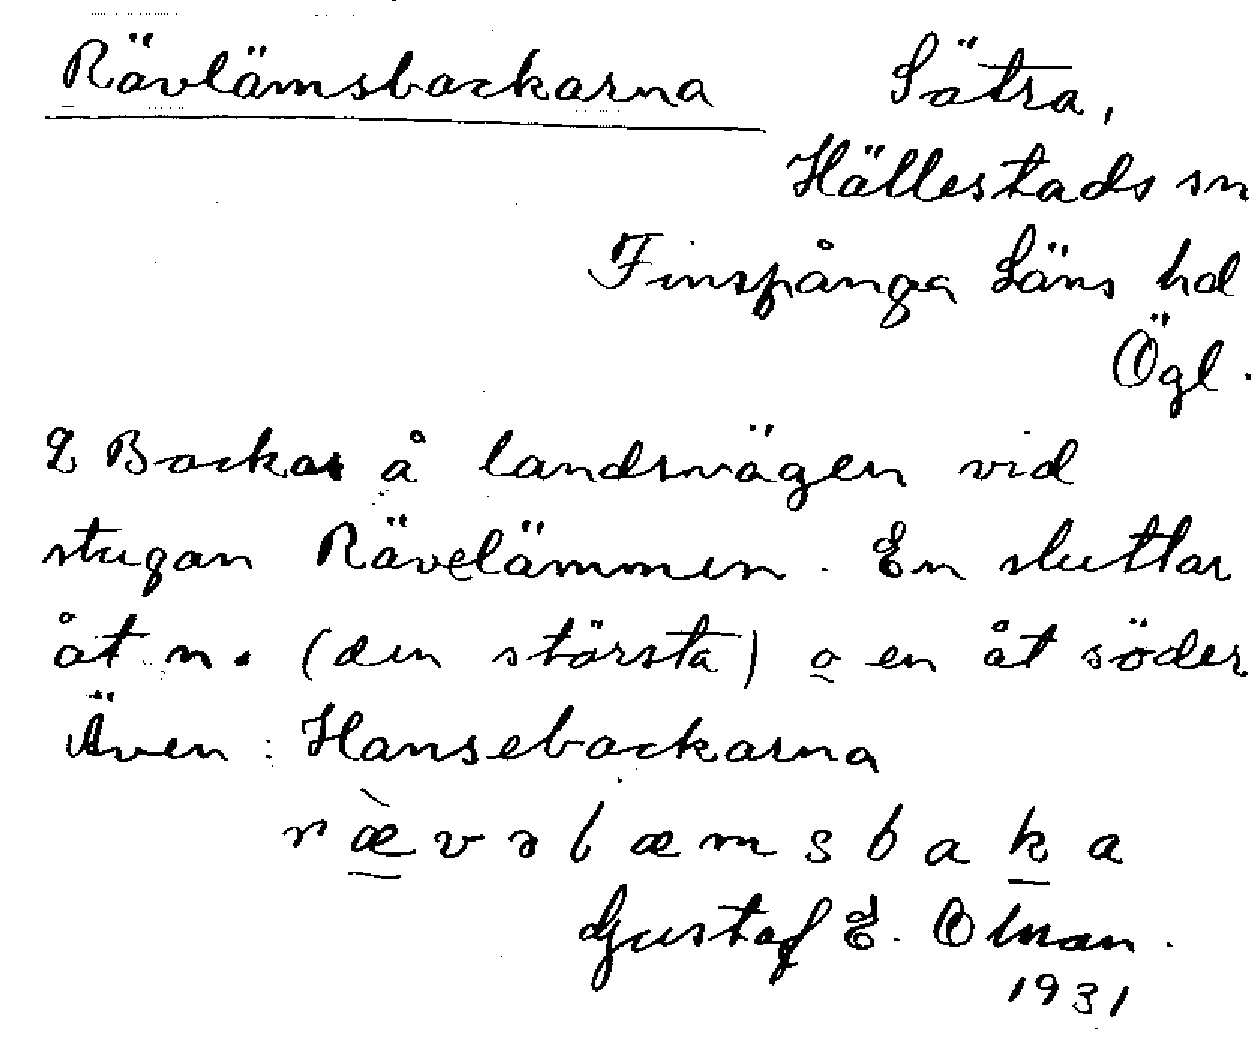 Rävlämsbackarna Sätra,
Hällestads sn
Finspånga Läns hd
Ögl.
2 Backar å landsvägen vid
stugan Rävelämmen. En sluttar
åt n. (den största) o en åt söder
Även: Hansebackarna
ræ̀vəlæmsbaka
Gustaf E.
1931